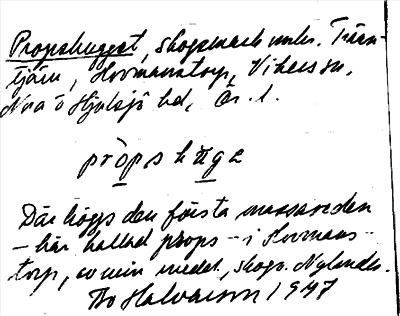 Propshugget, skogsmark unde. Tran-
tjärn, Hovmanstorp, Vikers sn,
Nora o Hjulsjö bd, Ör. l.
pròpshùg2
Där höggs den första massaveden
– här kallad props – i Hovmans-
torp, som min medd., skogv. Nylander.
Bo Halvarson 1947